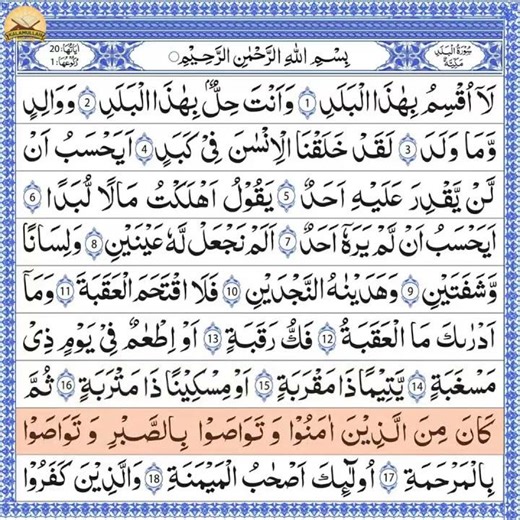 سُوْرَةُ الْبَلَدِ مَكِّيَّةٌ بِسْمِ اللّٰهِ الرَّحْمٰنِ الرَّحِيْمِ اٰيَاتُهَا: 20 رُكُوْعُهَا: 1
لَاۤ اُقْسِمُ بِهٰذَا الْبَلَدِ 1 وَاَنْتَ حِلٌّۢ بِهٰذَا الْبَلَدِ 2 وَوَالِدٍ
وَّمَا وَلَدَ 3 لَقَدْ خَلَقْنَا الْاِنْسٰنَ فِىْ كَبَدٍ 4 اَيَحْسَبُ اَنْ
لَّنْ يَّقْدِرَ عَلَيْهِ اَحَدٌ 5 يَقُوْلُ اَهْلَكْتُ مَالًا لُّبَدًا 6
اَيَحْسَبُ اَنْ لَّمْ يَرَهٗۤ اَحَدٌ 7 اَلَمْ نَجْعَلْ لَّهٗ عَيْنَيْنِ 8 وَلِسَانًا
وَّشَفَتَيْنِ 9 وَهَدَيْنٰهُ النَّجْدَيْنِ 10 فَلَا اقْتَحَمَ الْعَقَبَةَ 11 وَمَاۤ
اَدْرٰىكَ مَا الْعَقَبَةُ 12 فَكُّ رَقَبَةٍ 13 اَوْ اِطْعٰمٌ فِىْ يَوْمٍ ذِىْ
مَسْغَبَةٍ 14 يَّتِيْمًا ذَا مَقْرَبَةٍ 15 اَوْ مِسْكِيْنًا ذَا مَتْرَبَةٍ 16 ثُمَّ
كَانَ مِنَ الَّذِيْنَ اٰمَنُوْا وَ تَوَاصَوْا بِالصَّبْرِ وَ تَوَاصَوْا
بِالْمَرْحَمَةِ 17 اُولٰٓئِكَ اَصْحٰبُ الْمَيْمَنَةِ 18 وَالَّذِيْنَ كَفَرُوْا